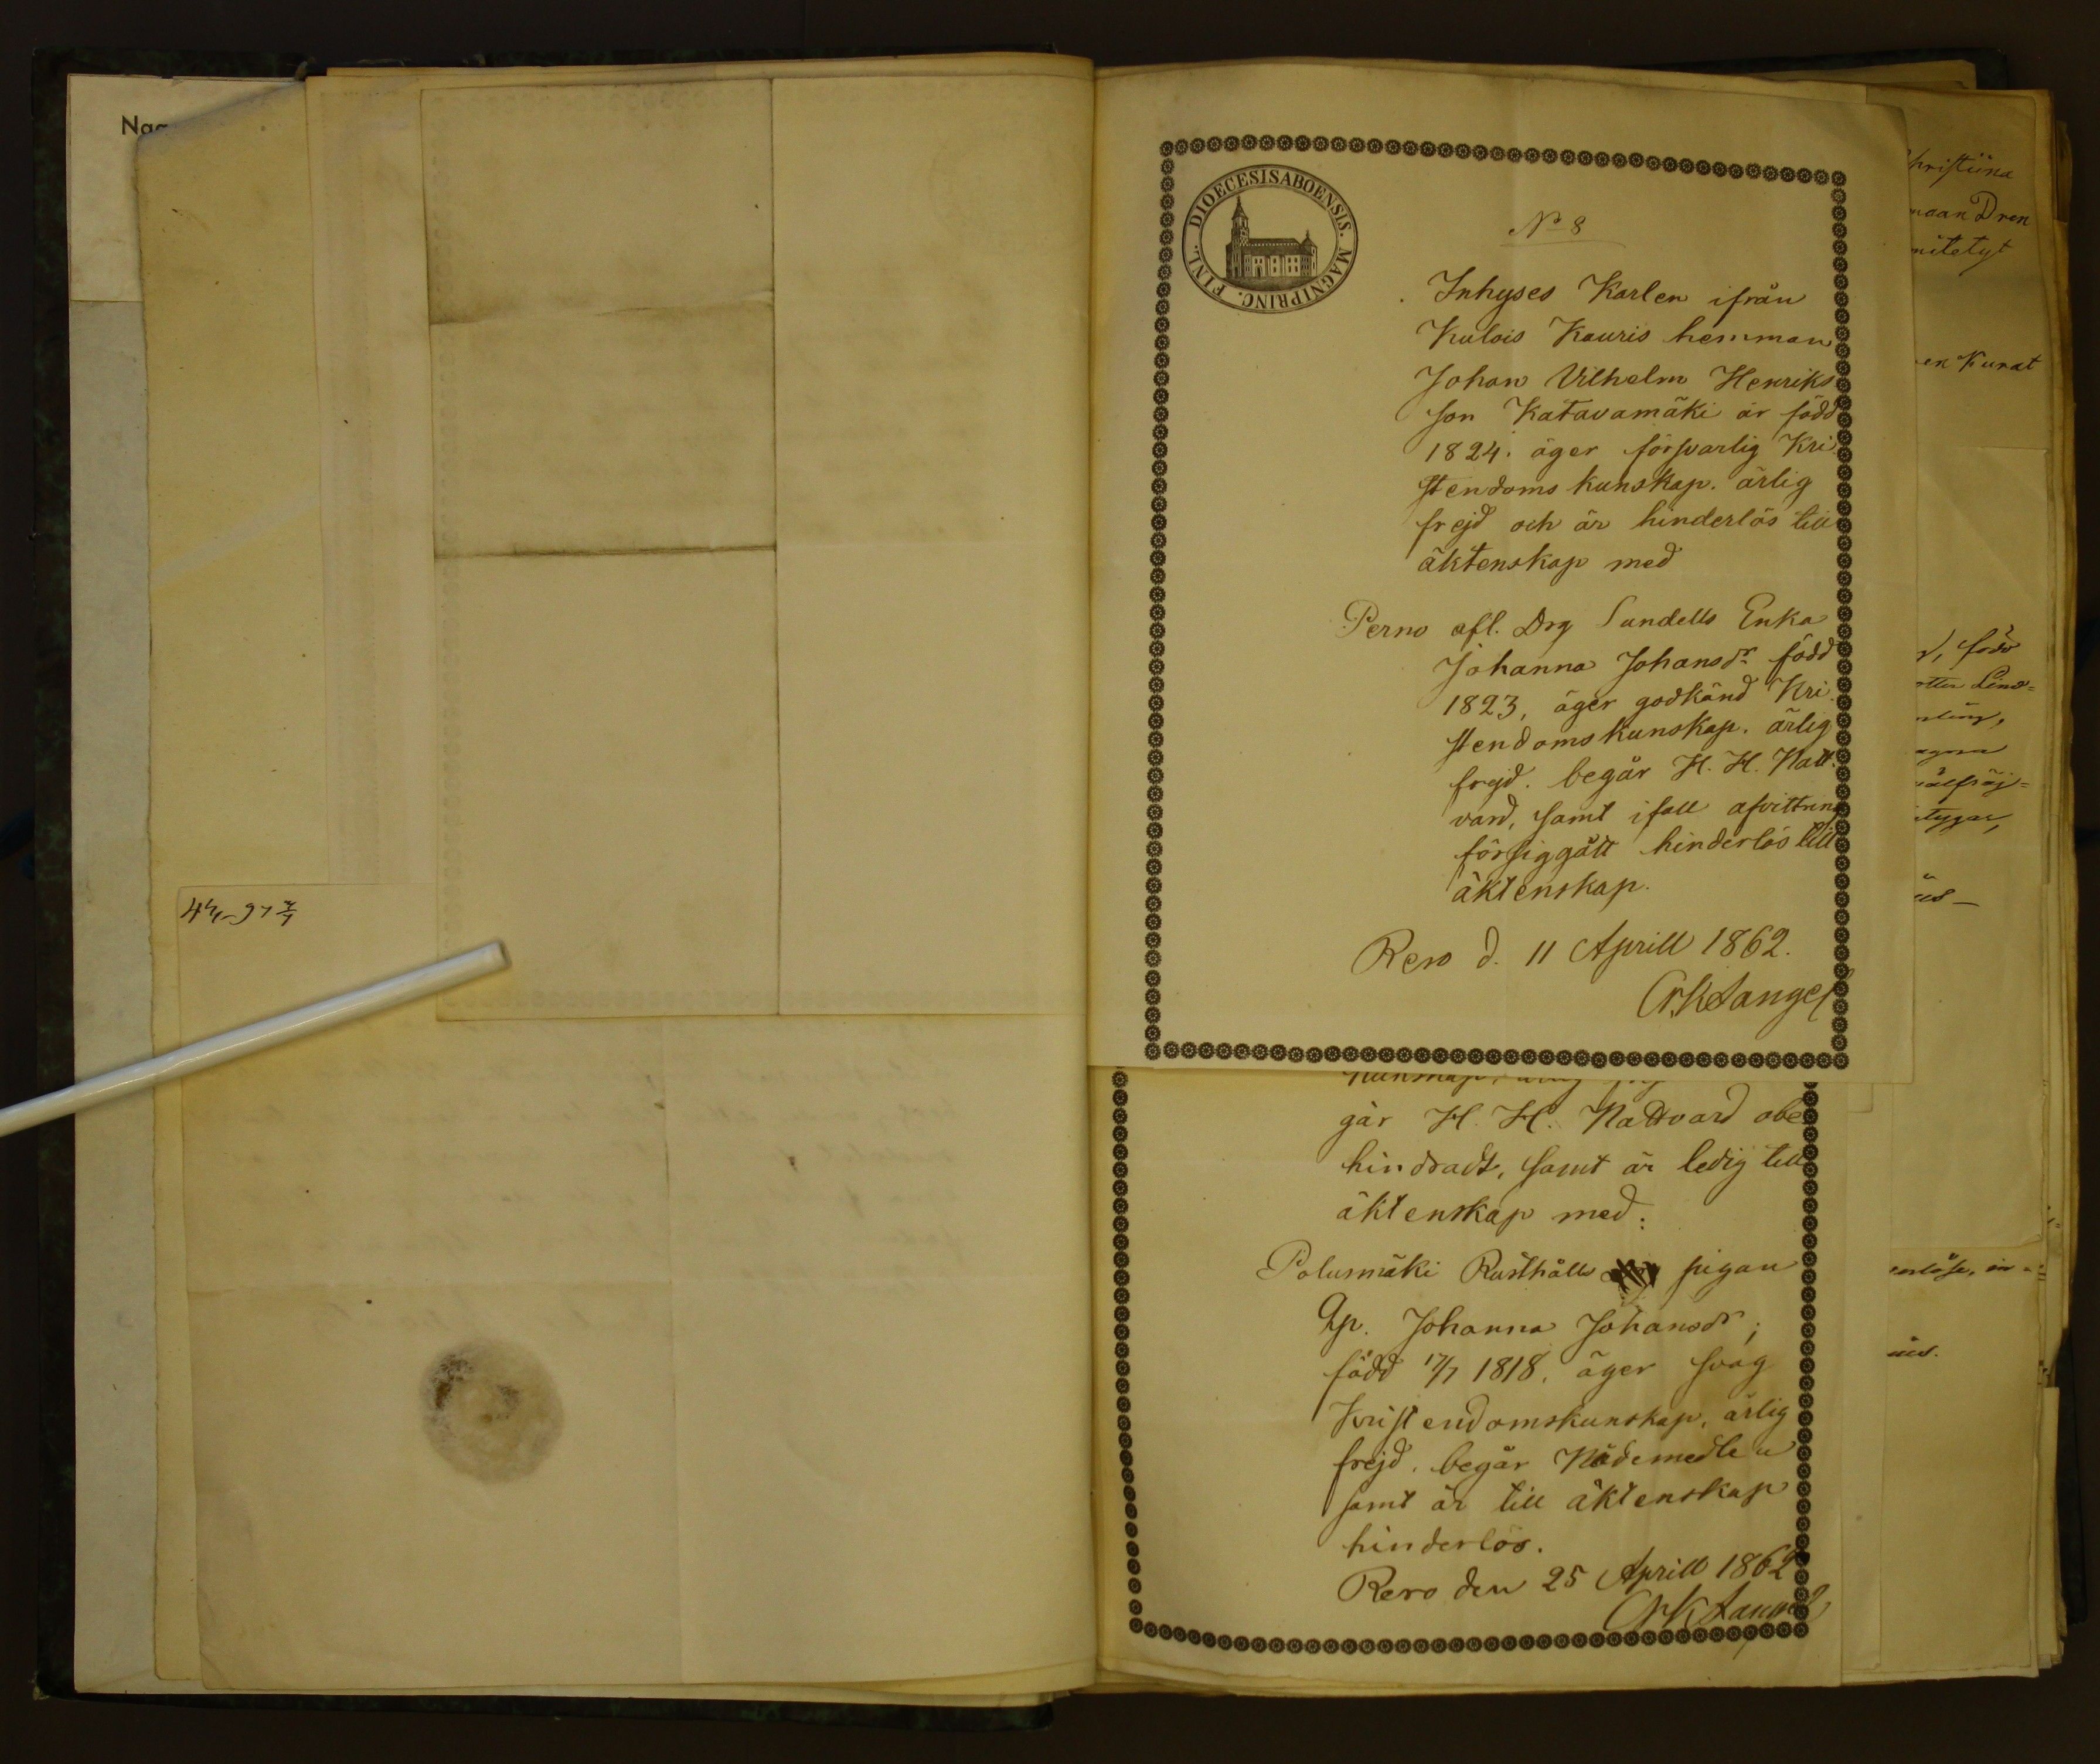 44-97
DIOECESISABOENSIS. MAGNIPRINC. FINL.
No 8
Inhyses Karlen ifrån
Kulois Kauris hemman
Johan Vilhelm Henriks
son Katavamäki är född
1824. äger försvarlig Kri
stendoms kunskap. ärlig
frejd och är hinderlös till
äktenskap med
Perno afl. Drg Sundells Enka
Johanna Johansdr född
1823, äger godkänd Kri
stendomskunskap. ärlig
frejd. begår H. H. Natt
vard, samt ifall afvittring
försiggått hinderlös till
äktenskap.
Reso d. 11 Aprill 1862.
går H. H. Nattvard obe
hindradt, samt är ledig till
äktenskap med:
Polusmäki Rusthålls pigan
Ap. Johanna Johansdr;
född 17/7 1818, äger svag
Kristendomskunskap, ärlig
frejd. begår Nådemedlen
samt är till äktenskap
hinderlös.
Reso den 25 Aprill 1862
hristiina
maan Dren
mitetyt
en Kunat
, född